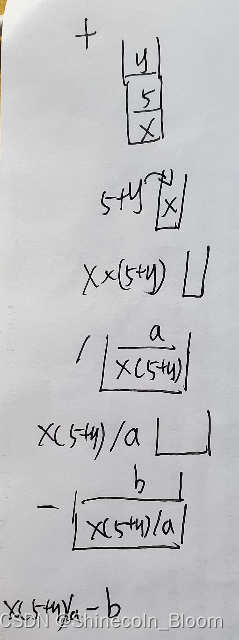 +
y
5
x
5+y x
x×(5+y)
/
a
x(5+y)
x(5+y)/a
b
-
x(5+y)/a
x(5+y)/a-b
CSDN @Shinecoln_Bloom